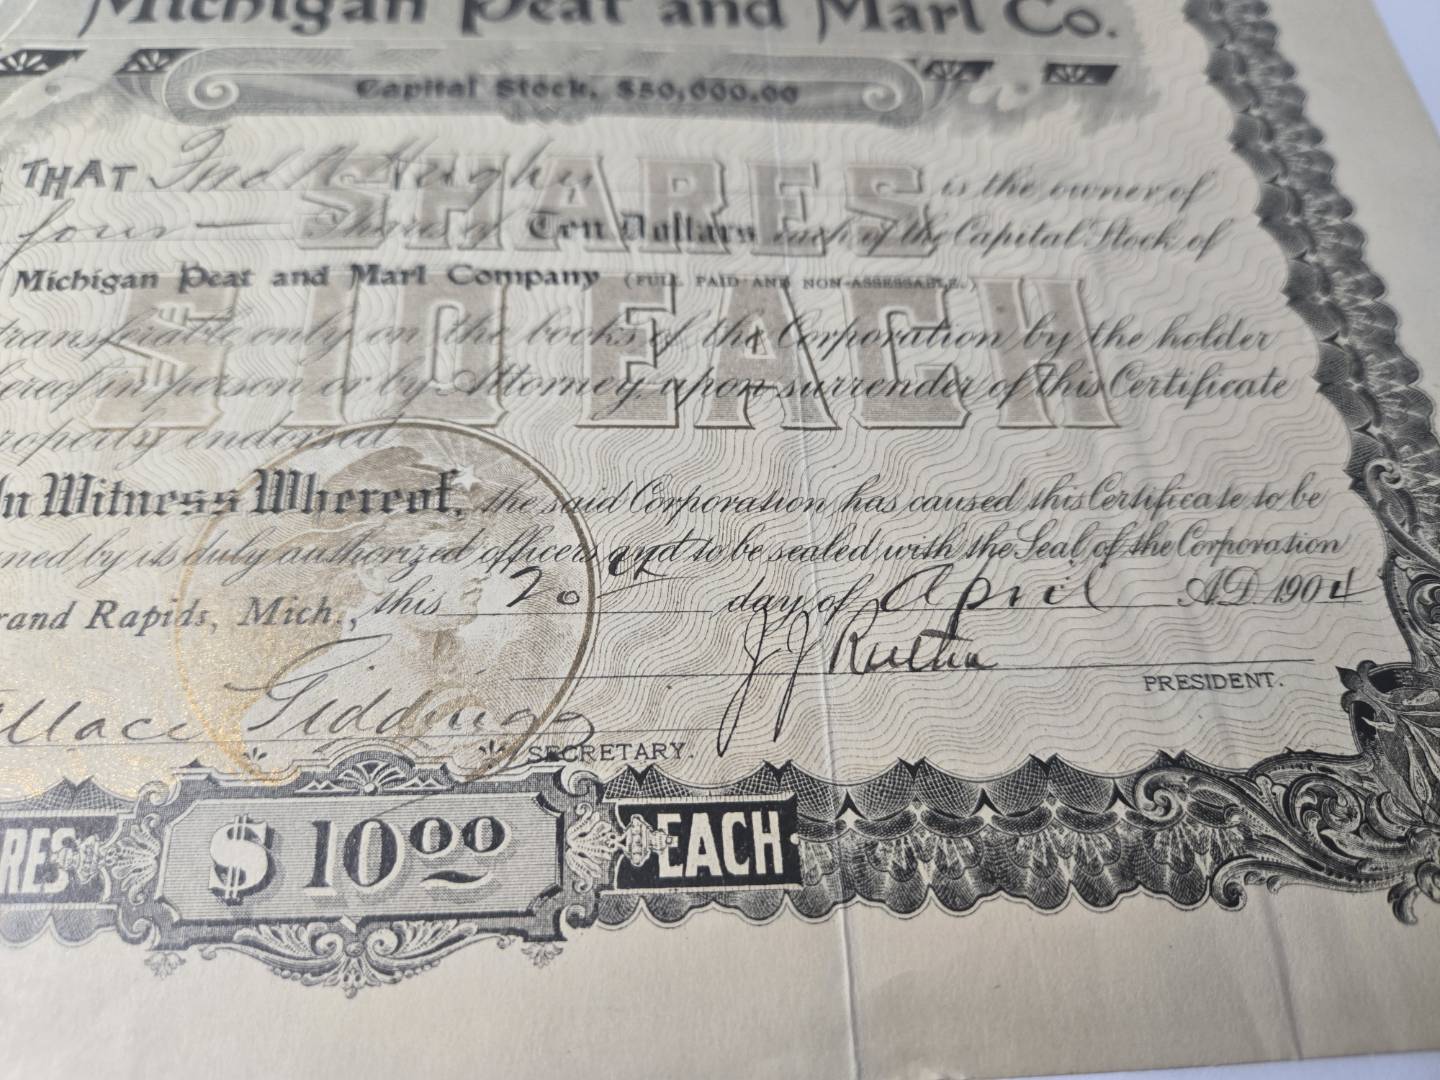 Michigan Peat and Marl Co.
Capital Stock, $50,000.00
SHARES
$10 EACH
THAT is the owner of
four Shares of Ten Dollars each of the Capital Stock of
Michigan Peat and Marl Company (FULL PAID AND NON-ASSESSABLE.)
transferable only on the books of the Corporation by the holder
hereof in person or by Attorney, upon surrender of this Certificate
properly endorsed
In Witness Whereof, the said Corporation has caused this Certificate to be
signed by its duly authorized officers and to be sealed with the Seal of the Corporation
Grand Rapids, Mich., this 20th day of April A.D. 1904
J J
PRESIDENT.
Wallace Giddings
SECRETARY.
RES $10 00 EACH